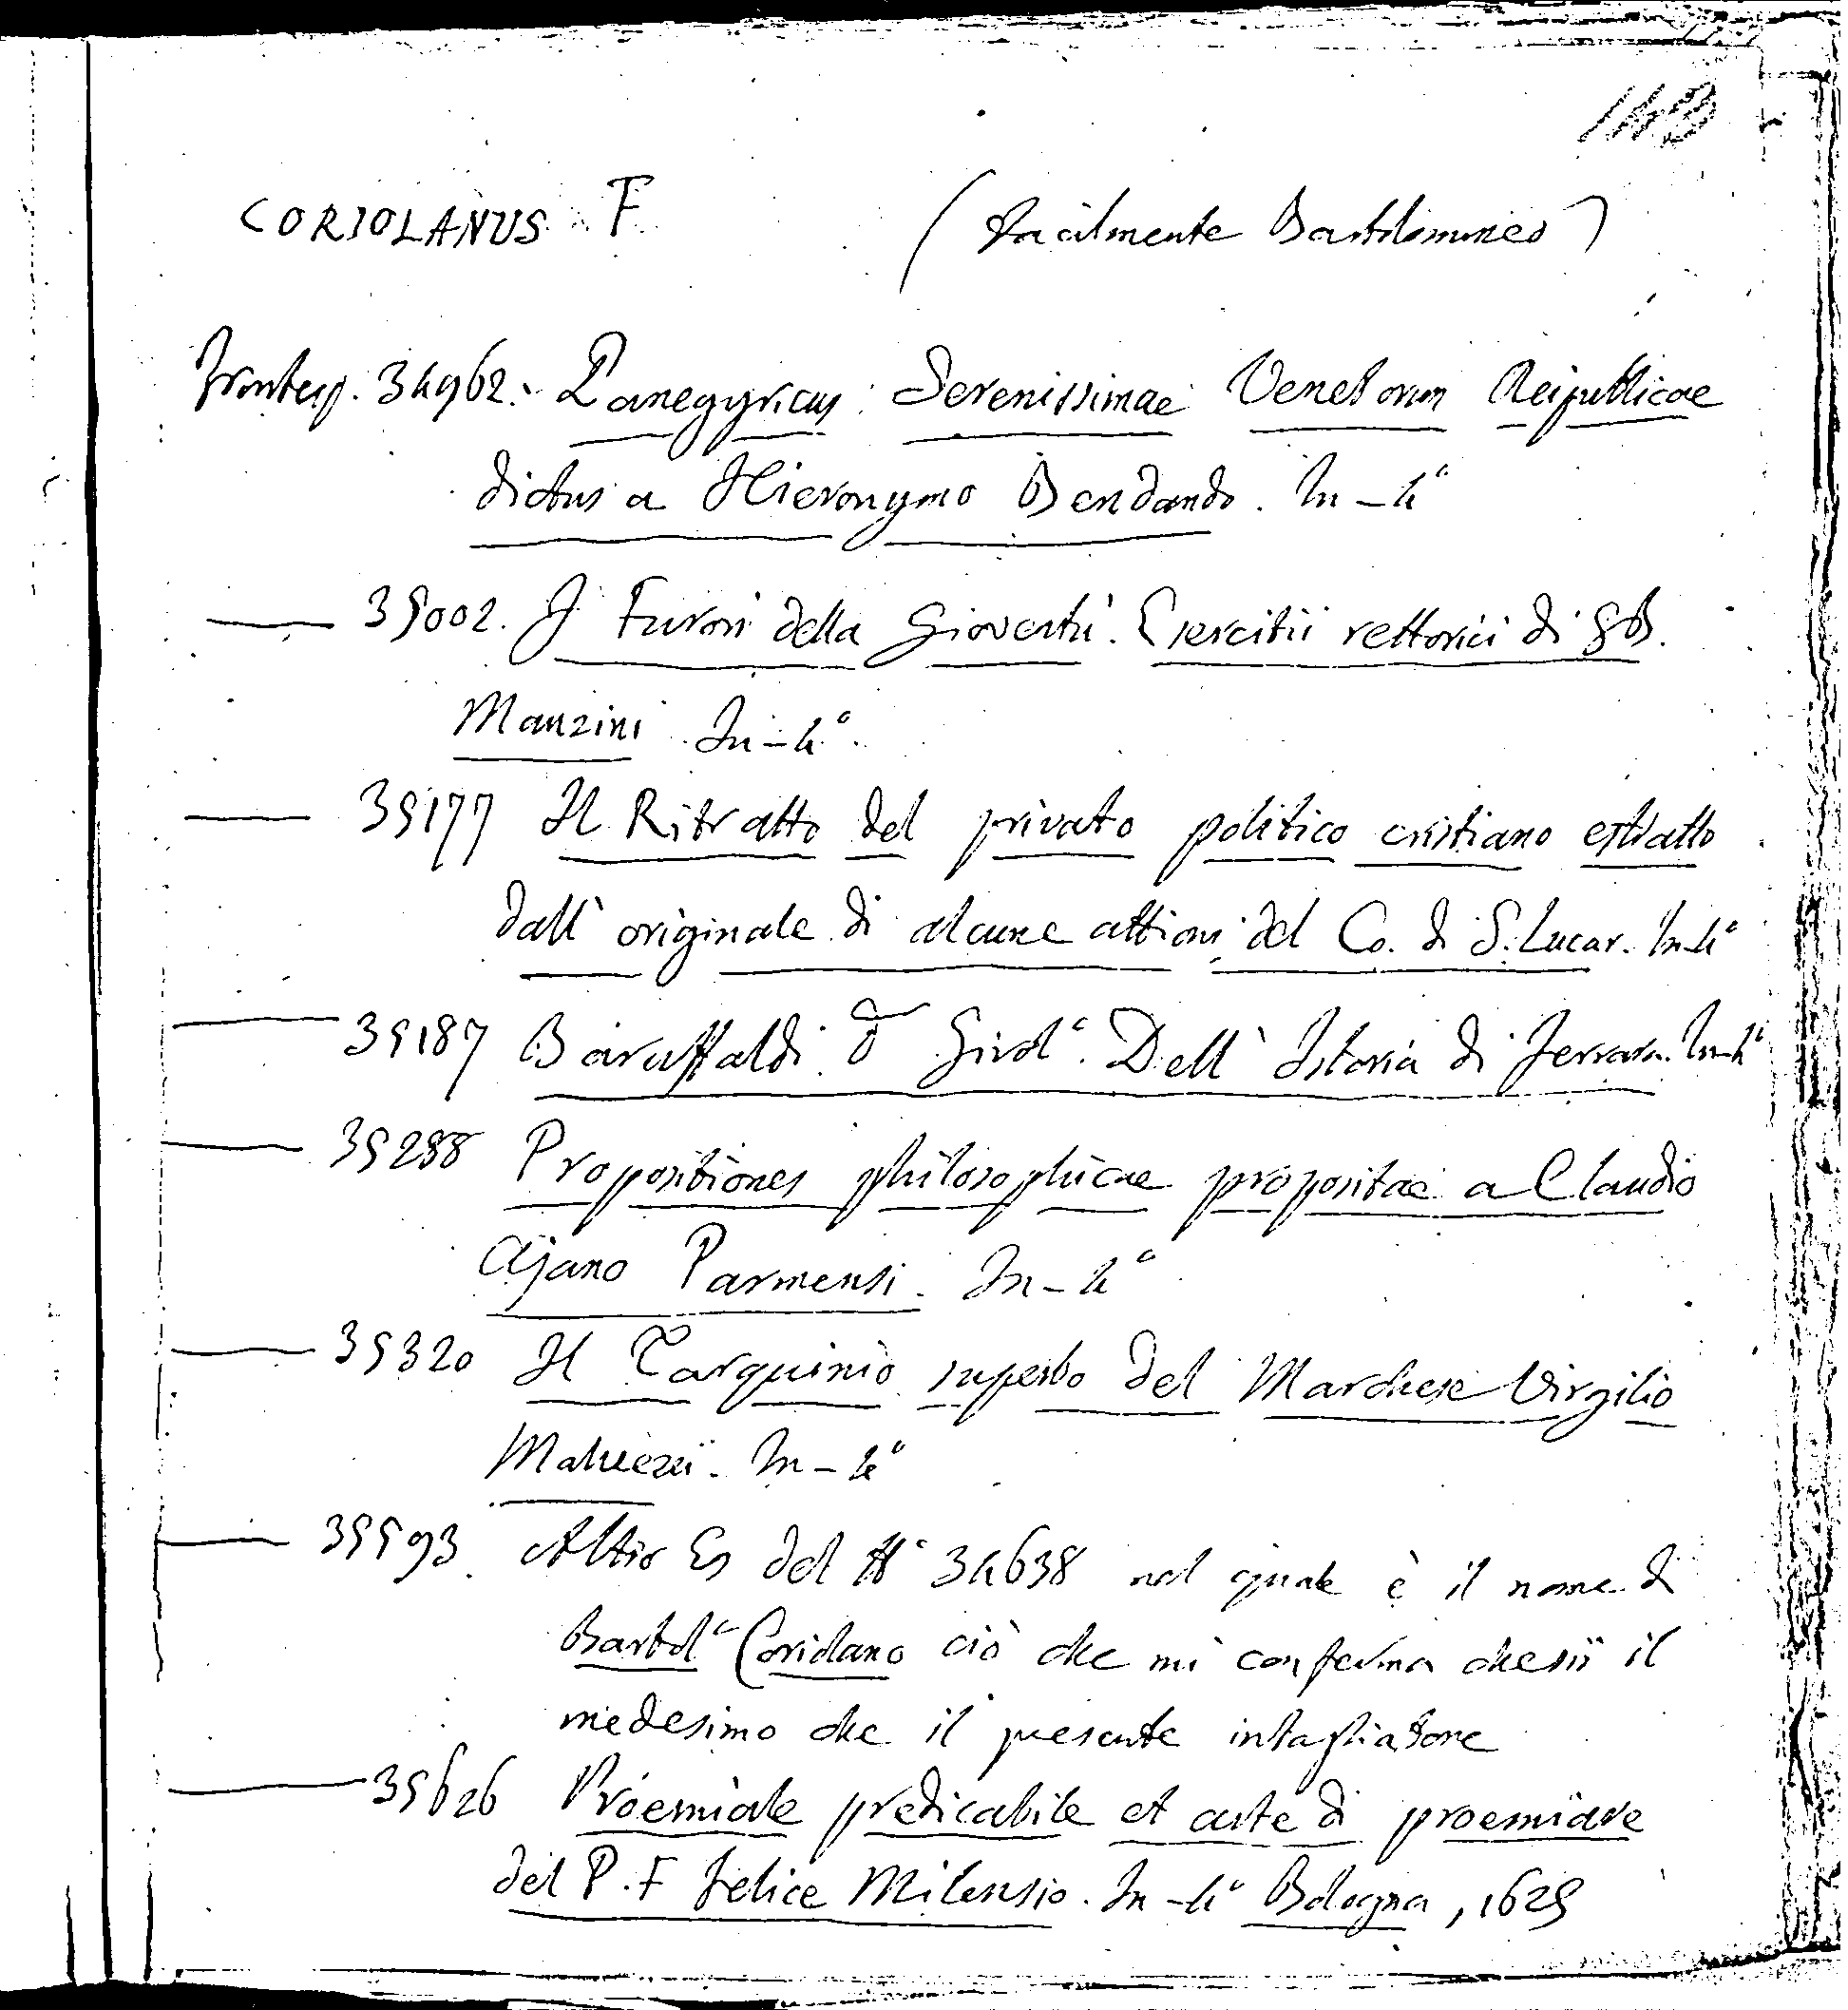 143
CORIOLANUS F (facilmente Bartolommeo)
Frontesp. 34962. Panegyricus Serenissimae Venetorum Reipublicae
dictus a Hieronymo Bendando. In-4°
—— 35002. I Furori della Gioventù. Esercitii rettorici di GB.
Manzini In-4°.
—— 35177 Il Ritratto del privato politico cristiano estratto
dall' originale di alcune attioni del Co. di S. Lucar. In-4°
—— 35187 Baruffaldi D Girol° Dell' Istoria di Ferrara. In-4°
—— 35288 Propositiones philosophicae propositae a Claudio
Ajano Parmensi. In-4°
—— 35320 Il Tarquinio superbo del Marchese Virgilio
Malvezzi. In-4°
—— 35593. Altro Es del N° 34638 nel quale è il nome di
Bartol° Coriolano ciò che mi conferma che sii il
medesimo che il presente intagliatore
—— 35626 Proemiale predicabile et arte di proemiare
del P. F Felice Milensio. In-4° Bologna, 1625